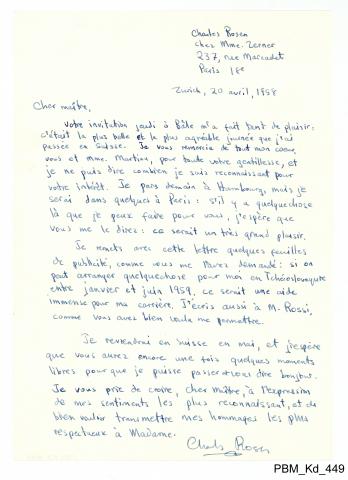 Charles Rosen
chez Mme. Zerner
237, rue Marcadet
Paris 18e
Zurich, 20 avril, 1958
Cher maître,
Votre invitation jeudi à Bâle m'a fait tant de plaisir:
c'était la plus belle et la plus agréable journée que j'ai
passée en Suisse. Je vous remercie de tout mon coeur,
vous et Mme. Martinu, pour toute votre gentillesse, et
je ne puis dire combien je suis reconnaissant pour
votre intérêt. Je pars demain à Hambourg, mais je
serai dans quelques à Paris: s'il y a quelquechose
là que je peux faire pour vous, j'espère que
vous me le direz: ce serait un très grand plaisir.
Je remets avec cette lettre quelques feuilles
de publicité, comme vous me l'avez demandé: si on
peut arranger quelquechose pour moi en Tchéoslovaquie
entre janvier et juin 1959, ce serait une aide
immense pour ma carrière. J'écris aussi à M. Rossi,
comme vous avez bien voulu me permettre.
Je reviendrai en Suisse en mai, et j'espère
que vous aurez encore une fois quelques moments
libres pour que je puisse passer vous dire bonjour.
Je vous prie de croire, cher Maître, à l'expression
de mes sentiments les plus reconnaissant, et de
bien vouloir transmettre mes hommages les plus
respectueux à Madame.
Charles Rosen
PBM_Kd_449